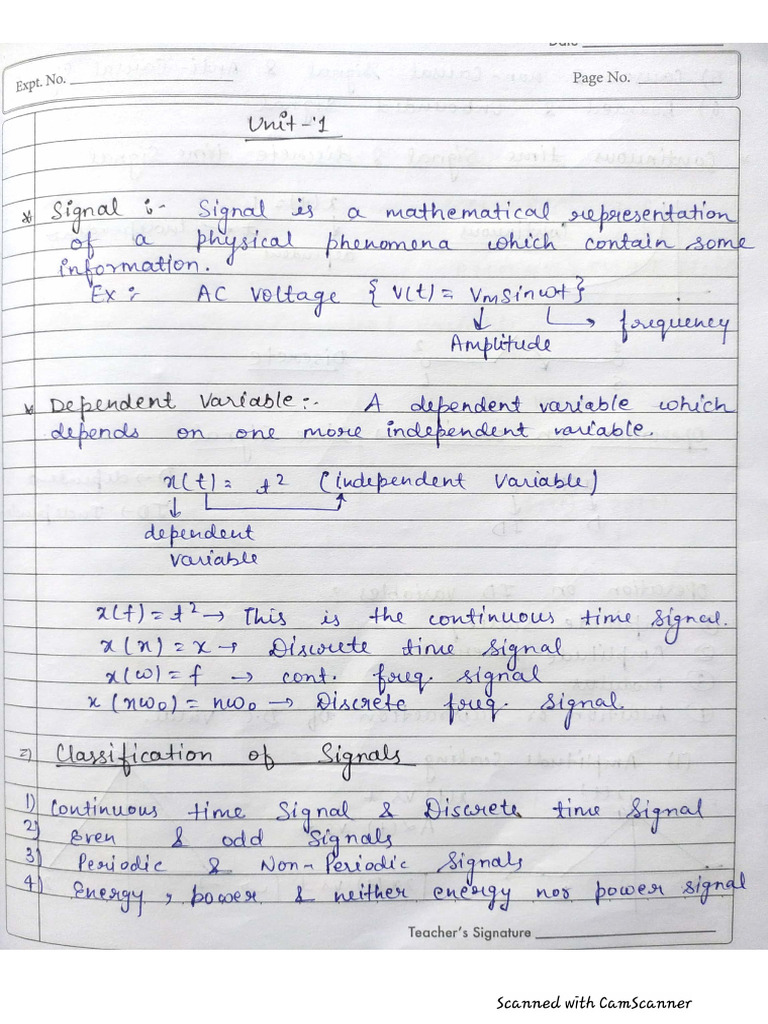 Date
Expt. No.
Page No.
Unit-1
* Signal :- Signal is a mathematical representation
of a physical phenomena which contain some
information.
Ex : AC Voltage { V(t) = Vm sinωt }
Amplitude
frequency
* Dependent Variable :- A dependent variable which
depends on one more independent variable.
x(t) = t² (independent variable)
dependent
variable
x(t) = t² → This is the continuous time signal.
x(n) = x → Discrete time signal
x(ω) = f → cont. freq. signal
x(nω₀) = nω₀ → Discrete freq. signal.
=) Classification of Signals
1) Continuous time Signal & Discrete time Signal
2) Even & odd Signals
3) Periodic & Non-Periodic Signals
4) Energy, power & neither energy nor power signal
Teacher's Signature
Scanned with CamScanner